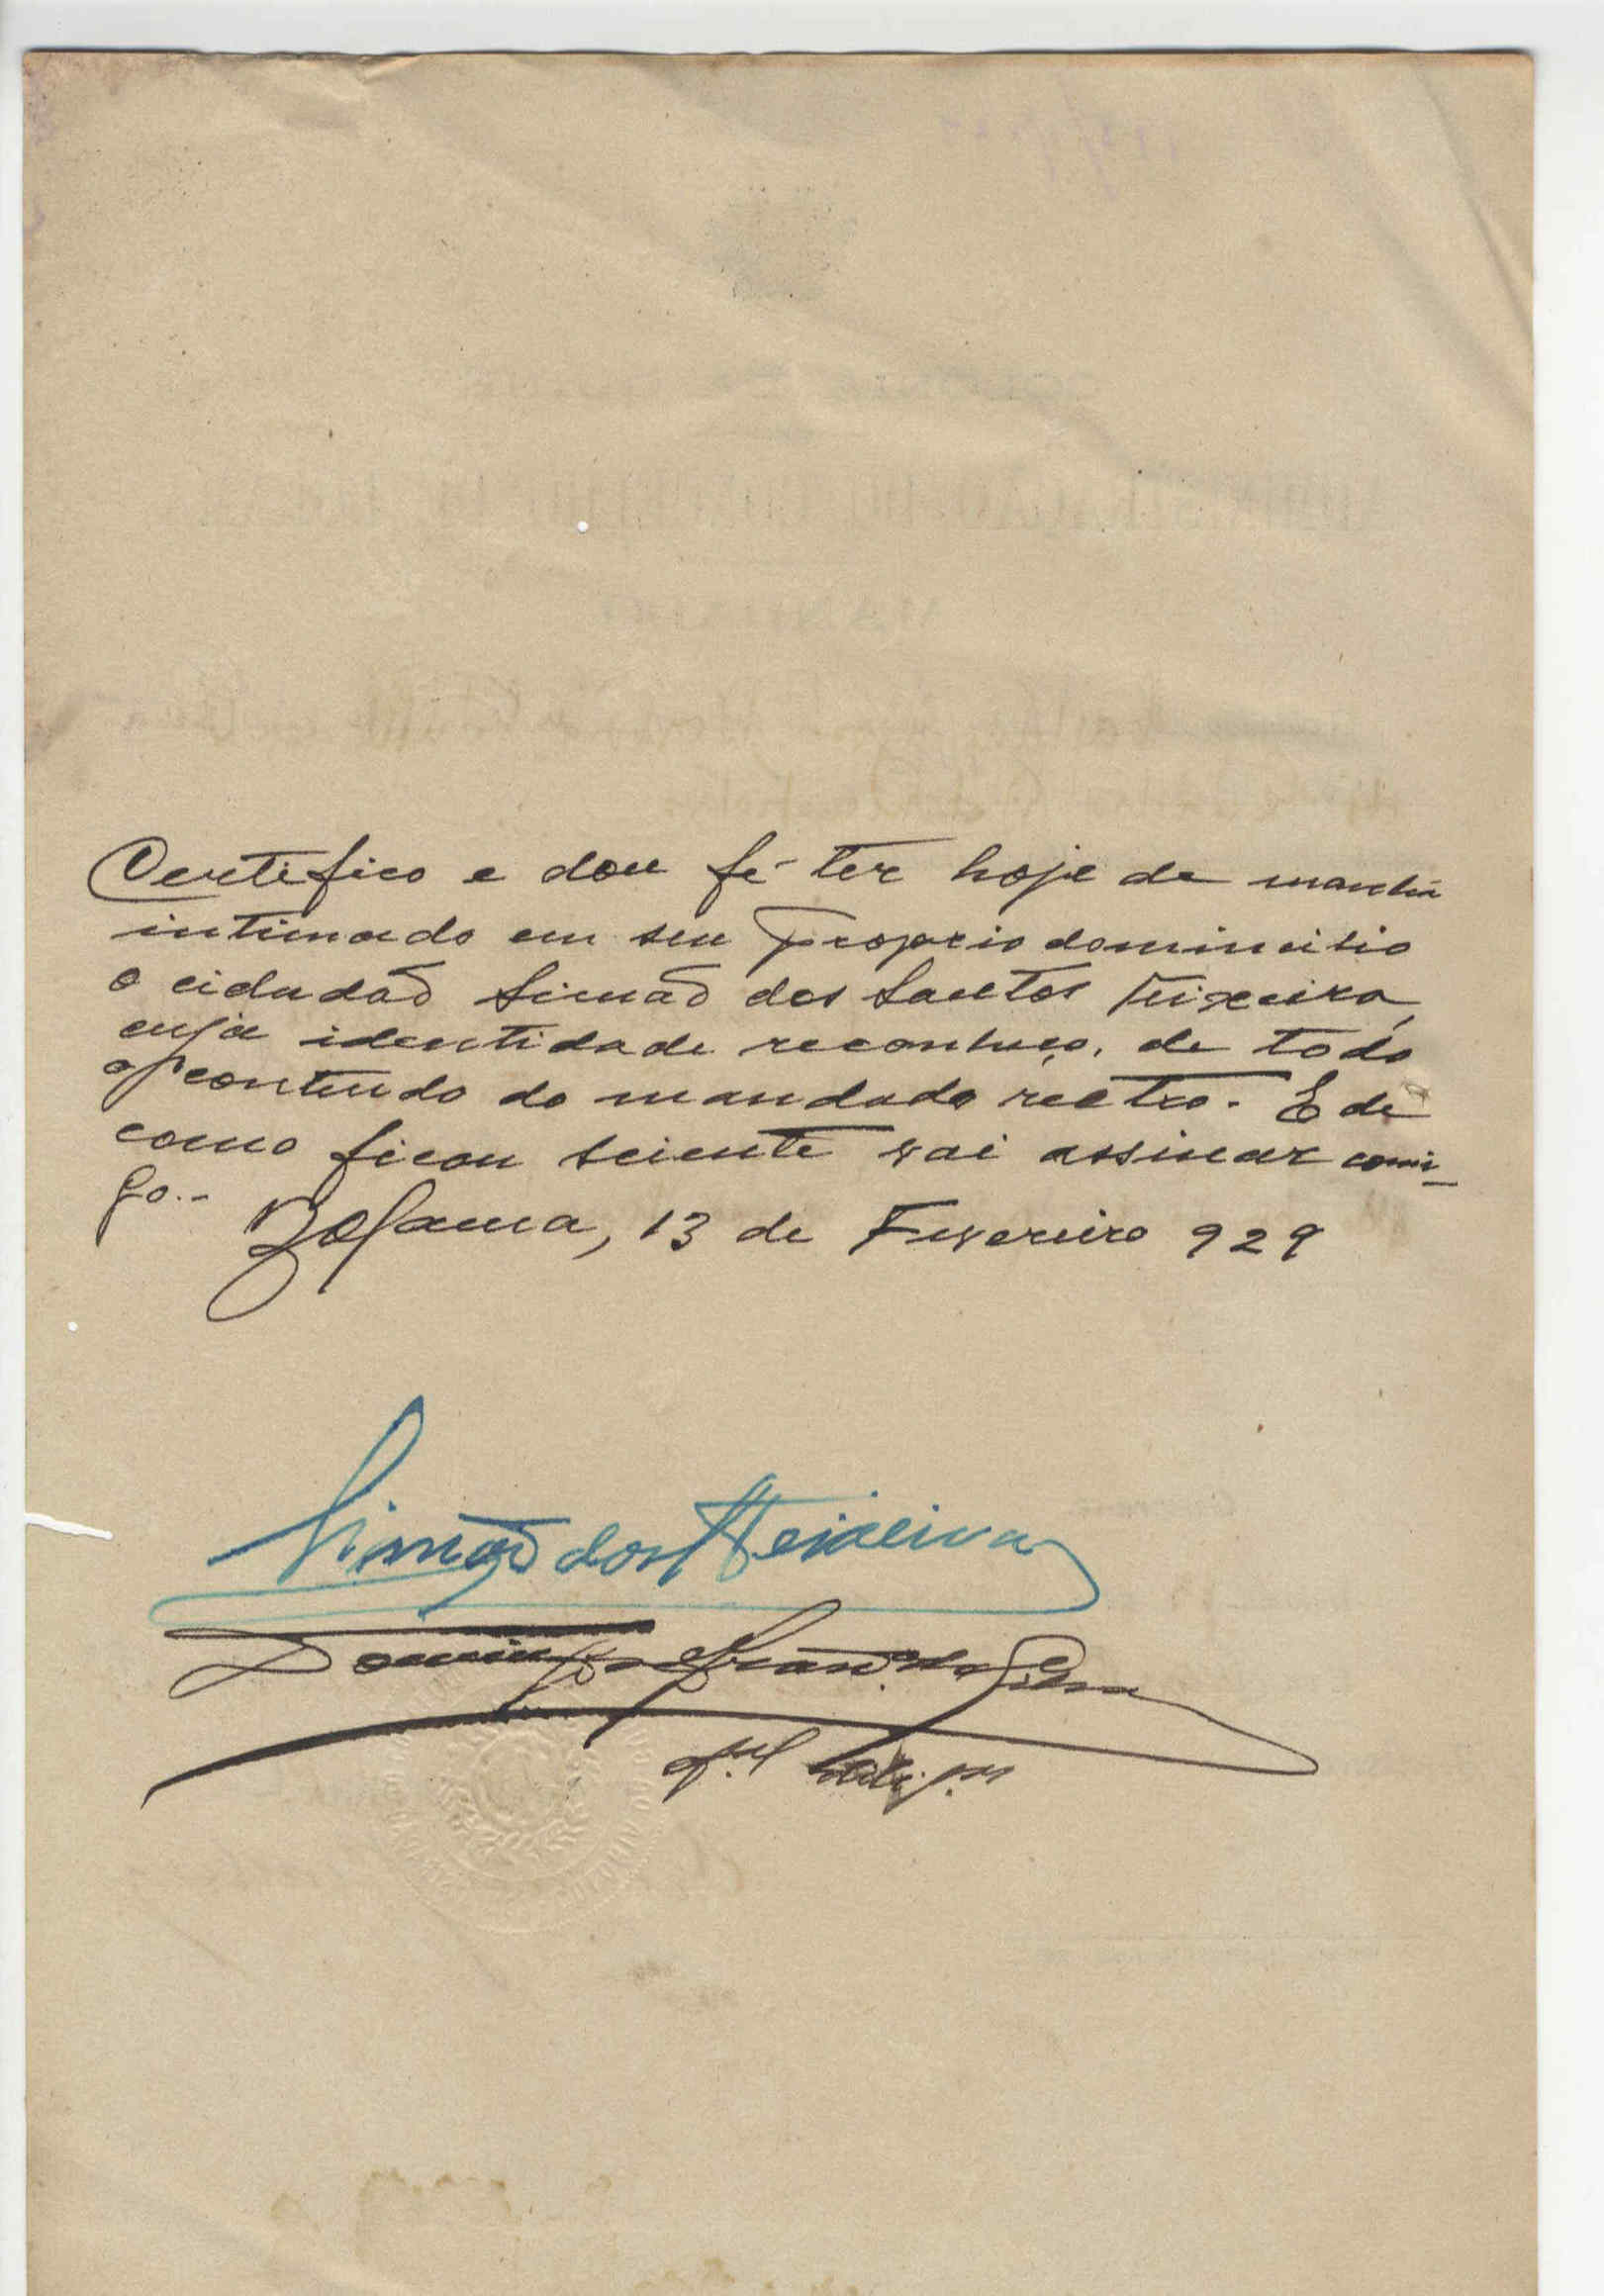 Certifico e dou fé ter hoje de manhã
intimado em seu proprio domincilio
o cidadão Simão dos Santos Teixeira,
cuja identidade reconheço, de todo
o conteudo do mandado rétro. E de
como ficou sciente vai assinar comi-
go.-
Bolama, 13 de Fevereiro 929
Simão dos S Teixeira
Domingos da Silva